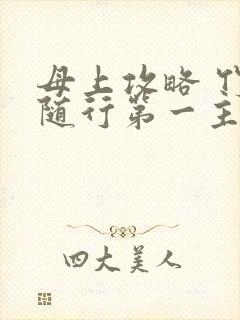 母上攻略
随行第一主
四大美人